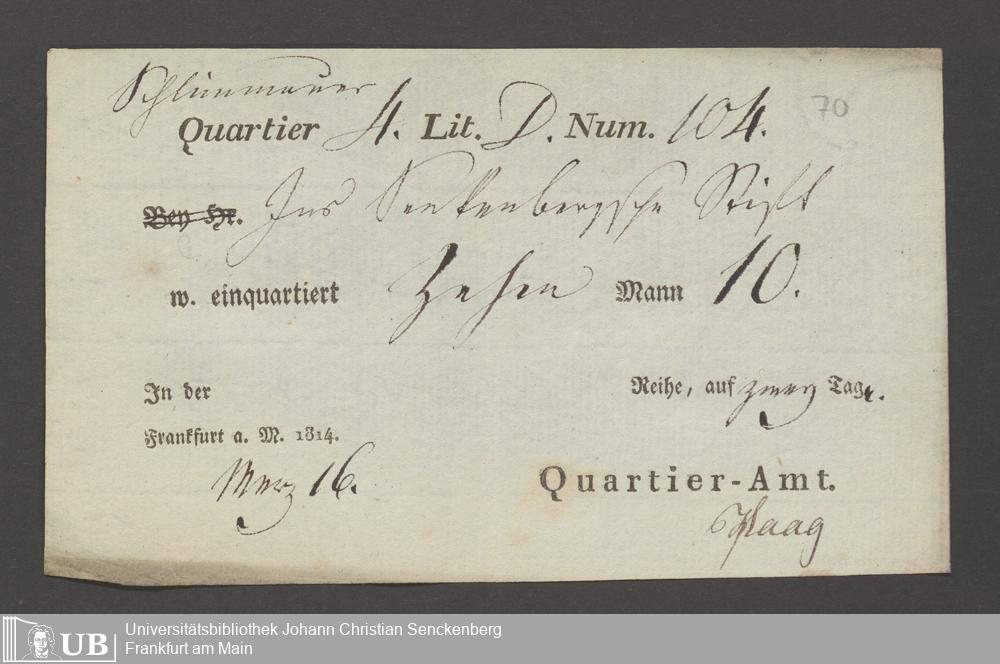 Schlimmauer
70
Quartier 4. Lit. D. Num. 104.
Bey Hr. Ins Senkenbergsche Stift
w. einquartiert Zehen Mann 10.
In der Reihe, auf zwey Tage.
Frankfurt a. M. 1814.
Merz 16.
Quartier-Amt.
Haag
UB Universitätsbibliothek Johann Christian Senckenberg
Frankfurt am Main